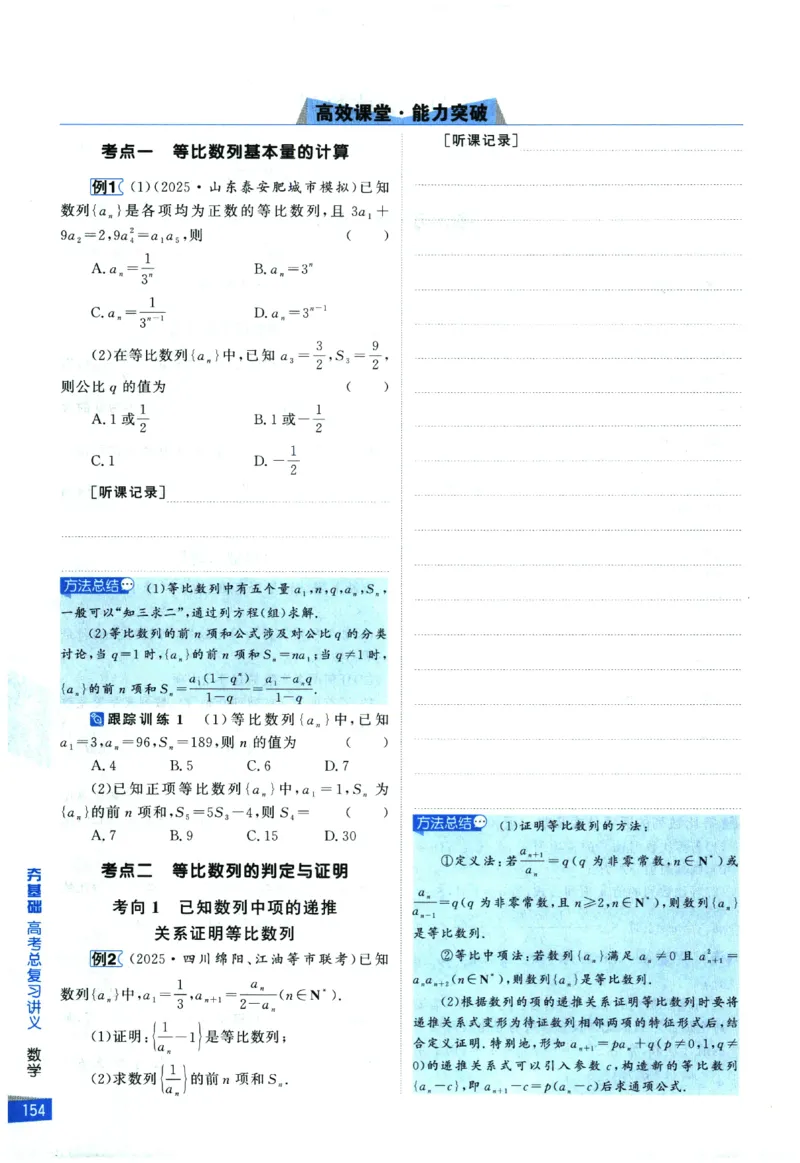 高效课堂·能力突破
考点一 等比数列基本量的计算
例1 (1)(2025·山东泰安肥城市模拟)已知
数列{aₙ}是各项均为正数的等比数列,且 3a₁+
9a₂=2,9a₄²=a₁a₅,则 ( )
A. aₙ=1/3ⁿ B. aₙ=3ⁿ
C. aₙ=1/3ⁿ⁻¹ D. aₙ=3ⁿ⁻¹
(2)在等比数列{aₙ}中,已知 a₃=3/2,S₃=9/2,
则公比 q 的值为 ( )
A. 1或1/2 B. 1或-1/2
C. 1 D. -1/2
[听课记录]
方法总结 (1)等比数列中有五个量 a₁,n,q,aₙ,Sₙ,
一般可以“知三求二”,通过列方程(组)求解.
(2)等比数列的前 n 项和公式涉及对公比 q 的分类
讨论,当 q=1 时,{aₙ}的前 n 项和 Sₙ=na₁;当 q≠1 时,
{aₙ}的前 n 项和 Sₙ=a₁(1-qⁿ)/(1-q)=(a₁-aₙq)/(1-q).
跟踪训练 1 (1)等比数列{aₙ}中,已知
a₁=3,aₙ=96,Sₙ=189,则 n 的值为 ( )
A. 4 B. 5 C. 6 D. 7
(2)已知正项等比数列{aₙ}中,a₁=1,Sₙ 为
{aₙ}的前 n 项和,S₅=5S₃-4,则 S₄= ( )
A. 7 B. 9 C. 15 D. 30
考点二 等比数列的判定与证明
考向 1 已知数列中项的递推
关系证明等比数列
例2 (2025·四川绵阳、江油等市联考)已知
数列{aₙ}中,a₁=1/3,aₙ₊₁=aₙ/(2-aₙ)(n∈N*).
(1)证明:{1/aₙ-1}是等比数列;
(2)求数列{1/aₙ}的前 n 项和 Sₙ.
[听课记录]
方法总结 (1)证明等比数列的方法:
①定义法:若aₙ₊₁/aₙ=q(q 为非零常数,n∈N*)或
aₙ/aₙ₋₁=q(q 为非零常数,且 n≥2,n∈N*),则数列{aₙ}
是等比数列.
②等比中项法:若数列{aₙ}满足 aₙ≠0 且 aₙ₊₁²=
aₙaₙ₊₂(n∈N*),则数列{aₙ}是等比数列.
(2)根据数列的项的递推关系证明等比数列时要将
递推关系式变形为待证数列相邻两项的特征形式后,结
合定义证明.特别地,形如 aₙ₊₁=paₙ+q(p≠0,1,q≠
0)的递推关系式可以引入参数 c,构造新的等比数列
{aₙ-c},即 aₙ₊₁-c=p(aₙ-c)后求通项公式.
夯基础 高考总复习讲义 数学
154